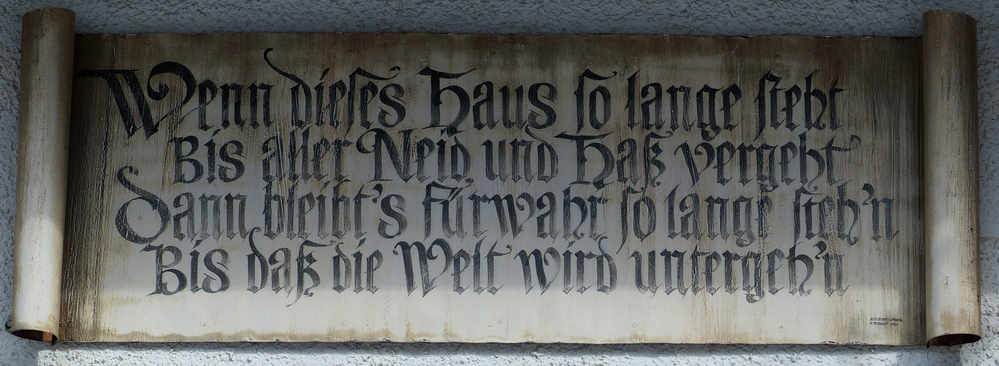 Wenn dieses Haus so lange steht
Bis aller Neid und Haß vergeht
Dann bleibt's fürwahr so lange steh'n
Bis daß die Welt wird untergeh'n